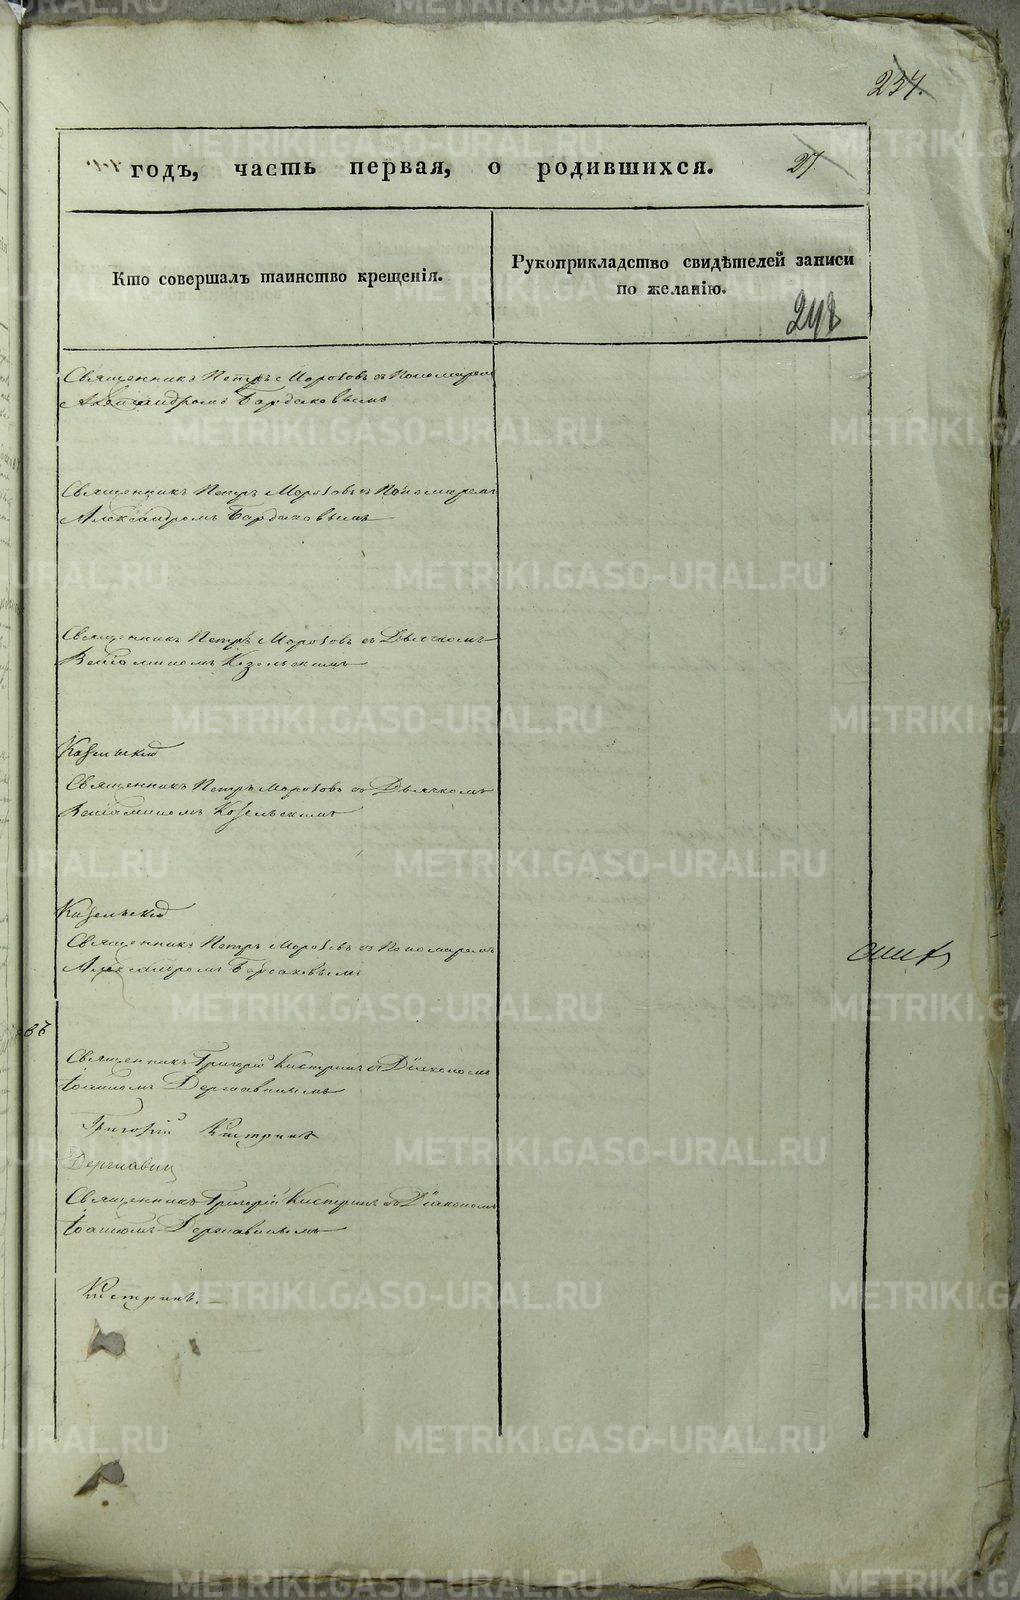 237.
годъ, часть первая, о родившихся.
27
Кто совершалъ таинство крещенія.
Рукоприкладство свидѣтелей записи
по желанію.
248
Священникъ Петръ Морозовъ съ Пономаремъ
Александромъ Бордаковымъ
Священникъ Петръ Морозовъ съ Пономаремъ
Александромъ Бордаковымъ
Священникъ Петръ Морозовъ съ Дьячкомъ
Веніаминомъ Козельскимъ
Козельскій
Священникъ Петръ Морозовъ съ Дьячкомъ
Веніаминомъ Козельскимъ
Козельскій
Священникъ Петръ Морозовъ съ Пономаремъ
Александромъ
Священникъ Григорій Кистринъ съ Діакономъ
Іоанномъ Державинымъ
Григорій Кистринъ
Державинъ
Священникъ Григорій Кистринъ съ Діакономъ
Іоанномъ Державинымъ
Кистринъ.
METRIKI.GASO-URAL.RU